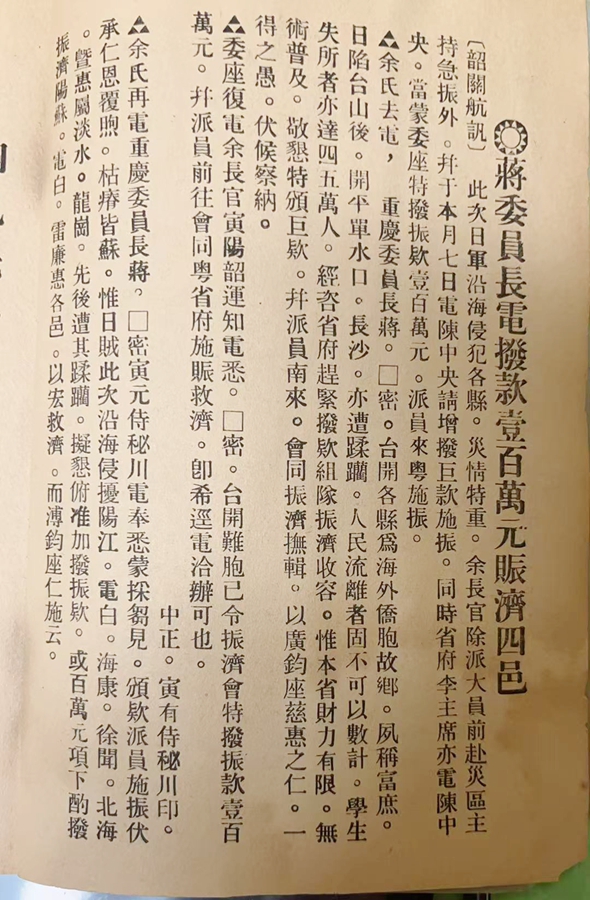 蔣委員長電撥款壹百萬元賑濟四邑
〔韶關航訊〕 此次日軍沿海侵犯各縣。災情特重。余長官除派大員前赴災區主
持急振外。幷于本月七日電陳中央請增撥巨款施振。同時省府李主席亦電陳中
央。當蒙委座特撥振欵壹百萬元。派員來粵施振。
▲余氏去電， 重慶委員長蔣。□密。台開各縣爲海外僑胞故鄉。夙稱富庶。
日陷台山後。開平單水口。長沙。亦遭蹂躪。人民流離者固不可以數計。學生
失所者亦達四五萬人。經咨省府趕緊撥欵組隊振濟收容。惟本省財力有限。無
術普及。敬懇特頒巨欵。幷派員南來。會同振濟撫輯。以廣鈞座慈惠之仁。一
得之愚。伏候察納。
▲委座復電余長官寅陽韶運知電悉。□密。台開難胞已令振濟會特撥振款壹百
萬元。幷派員前往會同粵省府施賑救濟。卽希逕電洽辦可也。
中正。寅有侍秘川印。
▲余氏再電重慶委員長蔣。□密寅元侍秘川電奉悉蒙採芻見。頒欵派員施振伏
承仁恩覆煦。枯瘠皆蘇。惟日賊此次沿海侵擾陽江。電白。海康。徐聞。北海
。曁惠屬淡水。龍崗。先後遭其蹂躪。擬懇俯准加撥振欵。或百萬元項下酌撥
振濟陽蘇。電白。雷廉惠各邑。以宏救濟。而溥鈞座仁施云。